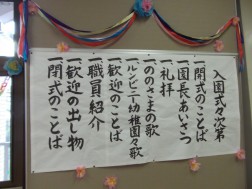 入園式々次第
一開式のことば
一園長あいさつ
一礼拝
一ののさまの歌
一ルンビニー幼稚園々歌
一歓迎のことば
一職員紹介
一歓迎の出し物
一閉式のことば